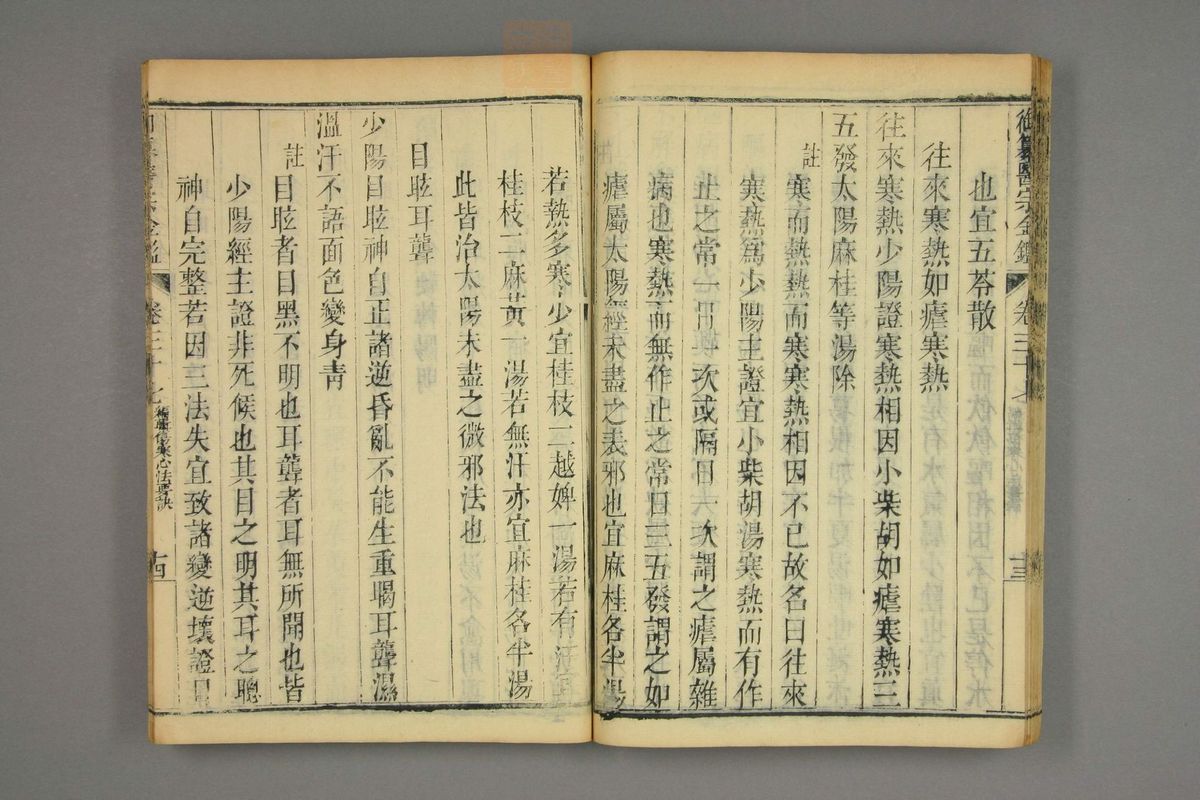 御纂醫宗金鑑 卷三十七
十三
也宜五苓散
往來寒熱如瘧寒熱
往來寒熱少陽證寒熱相因小柴胡如瘧寒熱三
五發太陽麻桂等湯除
註寒而熱熱而寒寒熱相因不已故名曰往來
寒熱為少陽主證宜小柴胡湯寒熱而有作
止之常一日一次或隔日一次謂之瘧屬雜
病也寒熱而無作止之常日三五發謂之如
瘧屬太陽經未盡之表邪也宜麻桂各半湯
若熱多寒少宜桂枝二越婢一湯若有汗宜
桂枝二麻黃一湯若無汗亦宜麻桂各半湯
此皆治太陽未盡之微邪法也
目眩耳聾
少陽目眩神自正諸逆昏亂不能生重暍耳聾濕
溫汗不語面色變身青
註目眩者目黑不明也耳聾者耳無所聞也皆
少陽經主證非死候也其目之明其耳之聰
神自完整若因三法失宜致諸變逆壞證目
卷三十七 編輯傷寒心法要訣
十四